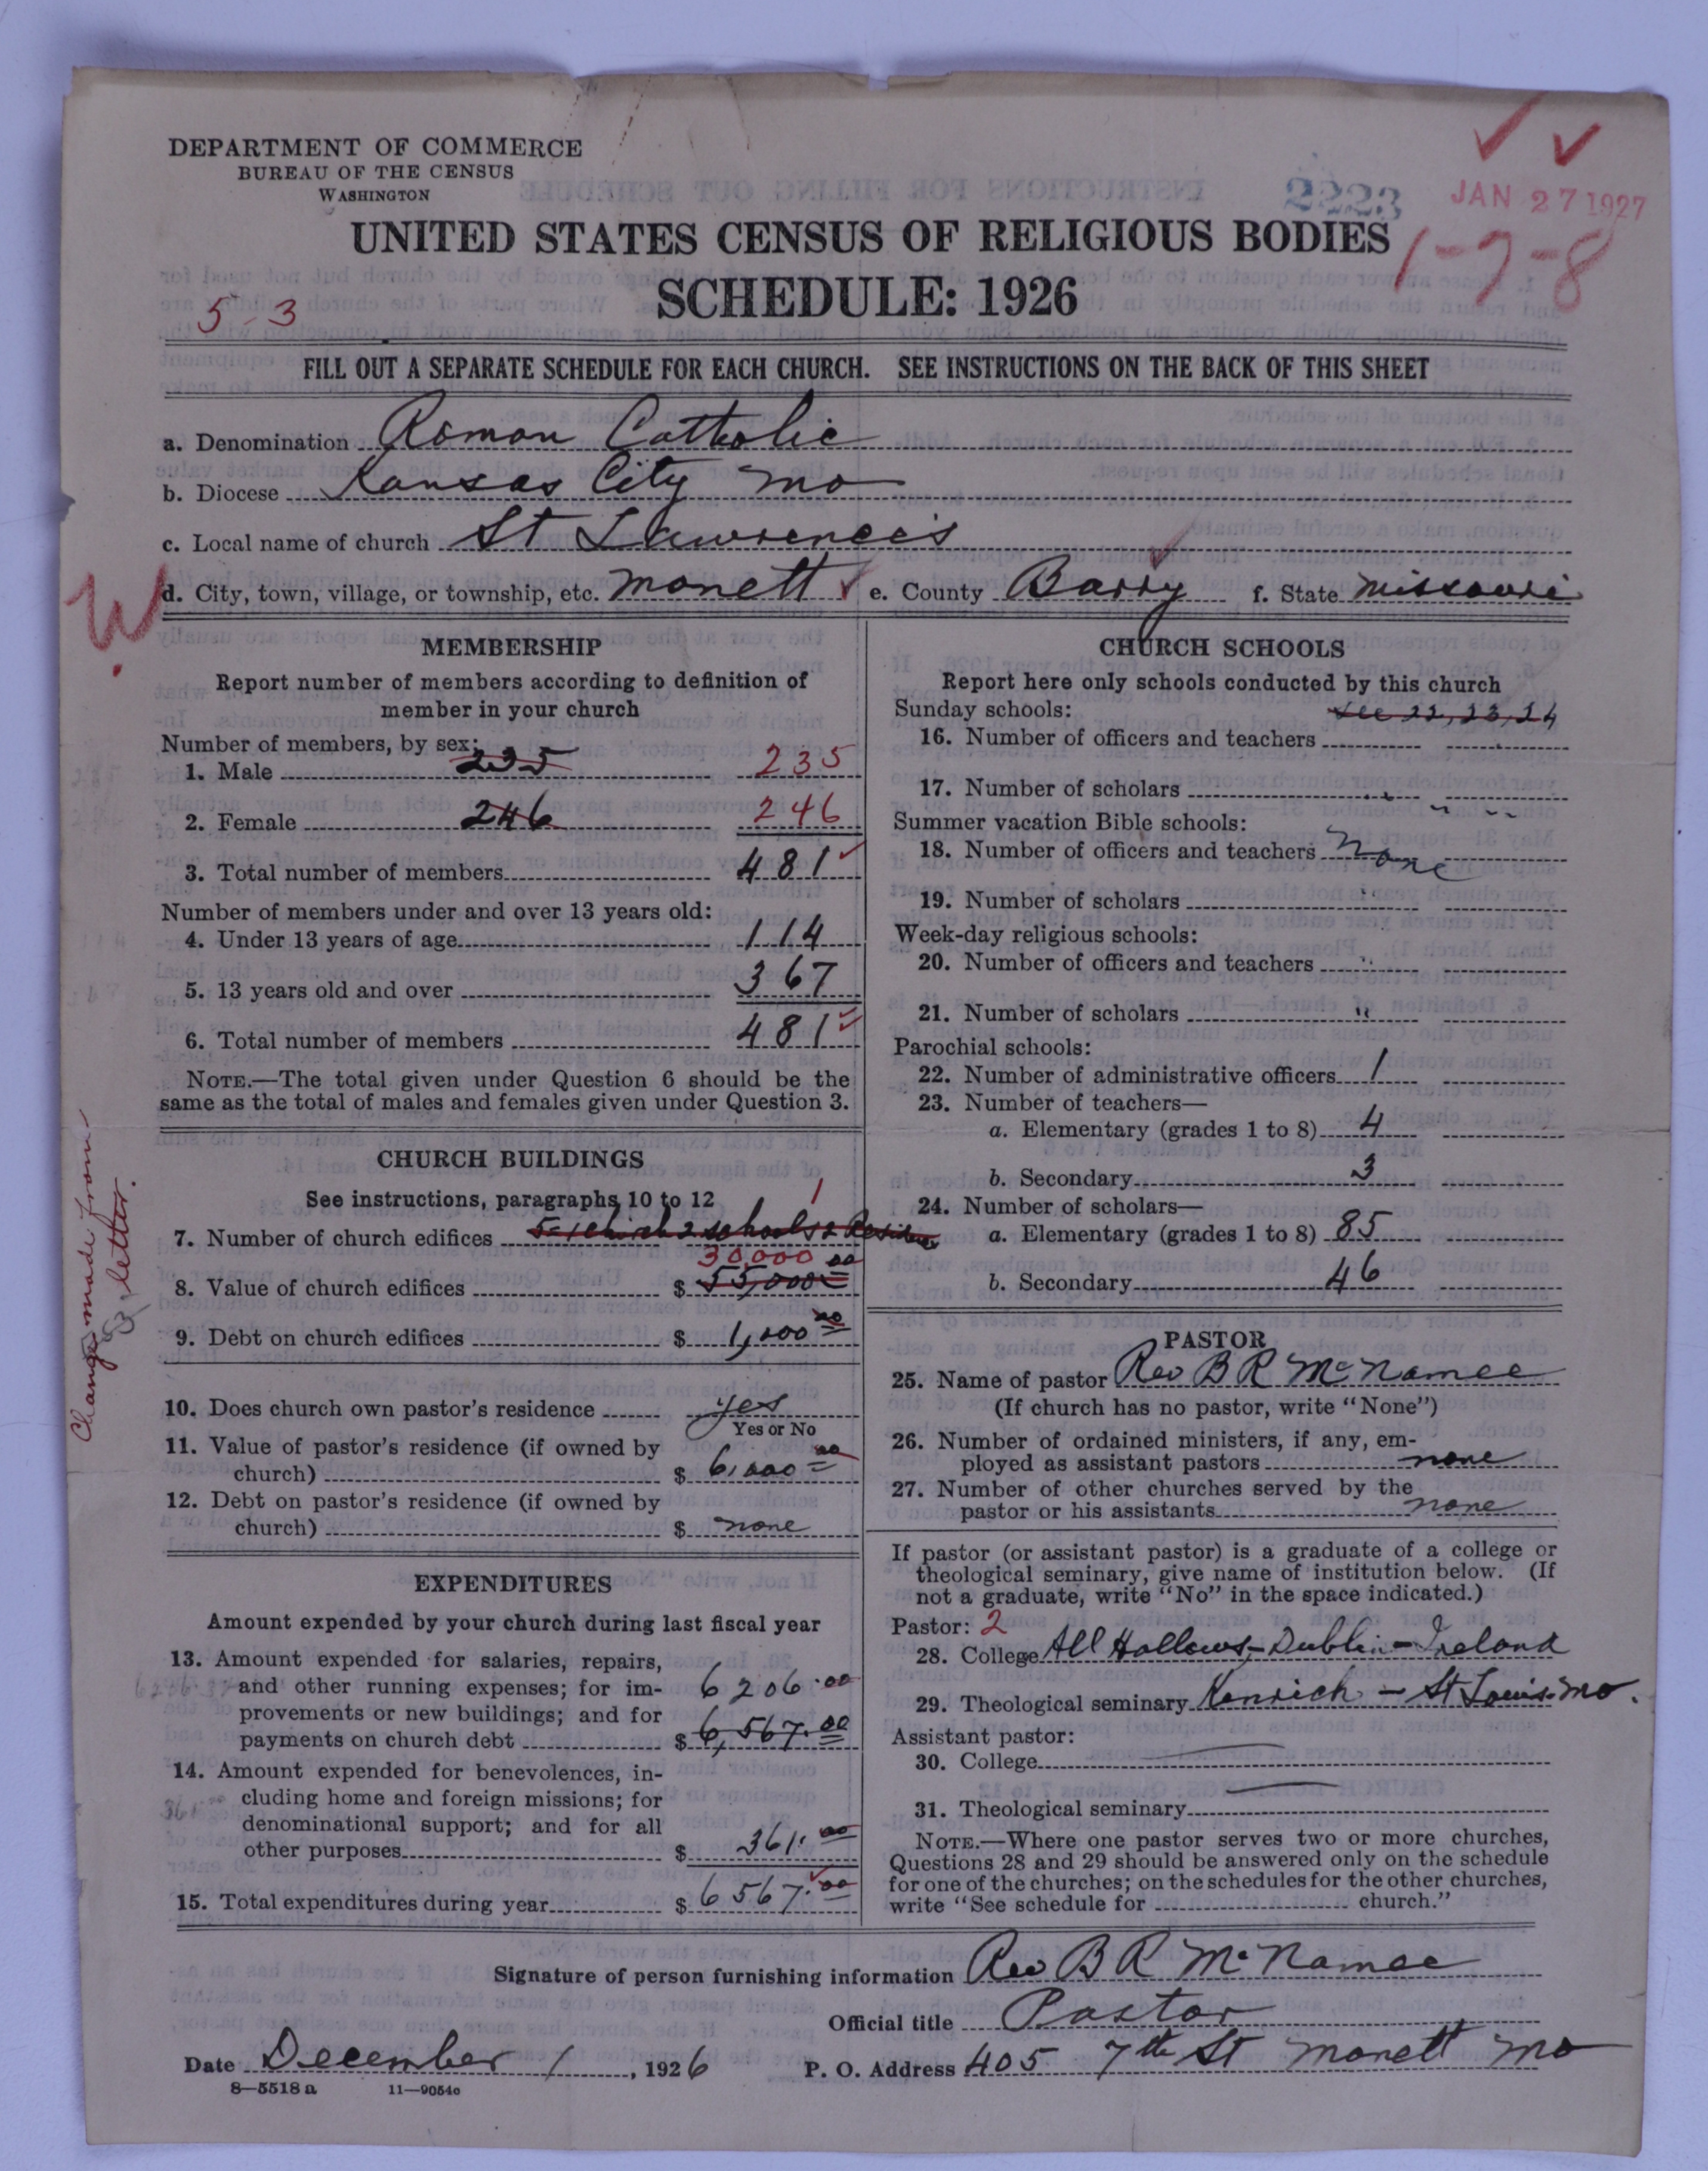 DEPARTMENT OF COMMERCE
BUREAU OF THE CENSUS
WASHINGTON
2223
JAN 27 1927
UNITED STATES CENSUS OF RELIGIOUS BODIES
1-7-8
SCHEDULE: 1926
5-3
FILL OUT A SEPARATE SCHEDULE FOR EACH CHURCH. SEE INSTRUCTIONS ON THE BACK OF THIS SHEET
a. Denomination Roman Catholic
b. Diocese Kansas City Mo
c. Local name of church St Lawrence's
W.
d. City, town, village, or township, etc. Monett e. County Barry f. State Missouri
MEMBERSHIP
Report number of members according to definition of
member in your church
Number of members, by sex:
1. Male 235 235
2. Female 246 246
3. Total number of members 481
Number of members under and over 13 years old:
4. Under 13 years of age 114
5. 13 years old and over 367
6. Total number of members 481
NOTE.—The total given under Question 6 should be the
same as the total of males and females given under Question 3.
CHURCH BUILDINGS
See instructions, paragraphs 10 to 12
1
7. Number of church edifices 5-1 church 2 schools 2 Residen
30,000 00
8. Value of church edifices $ 55,000
9. Debt on church edifices $ 1,000 00
10. Does church own pastor's residence yes
Yes or No
11. Value of pastor's residence (if owned by
church) $ 6,000 00
12. Debt on pastor's residence (if owned by
church) $ none
Change made from
letter.
EXPENDITURES
Amount expended by your church during last fiscal year
13. Amount expended for salaries, repairs,
and other running expenses; for im- 6206.00
provements or new buildings; and for
payments on church debt $ 6,567.00
14. Amount expended for benevolences, in-
cluding home and foreign missions; for
361
denominational support; and for all
other purposes $ 361.00
15. Total expenditures during year $ 6567.00
CHURCH SCHOOLS
Report here only schools conducted by this church
Sunday schools: See 22, 23, 24
16. Number of officers and teachers
17. Number of scholars " "
Summer vacation Bible schools:
18. Number of officers and teachers None
19. Number of scholars "
Week-day religious schools:
20. Number of officers and teachers "
21. Number of scholars "
Parochial schools:
22. Number of administrative officers 1
23. Number of teachers—
a. Elementary (grades 1 to 8) 4
b. Secondary 3
24. Number of scholars—
a. Elementary (grades 1 to 8) 85
b. Secondary 46
PASTOR
25. Name of pastor Rev B R McNamee
(If church has no pastor, write "None")
26. Number of ordained ministers, if any, em-
ployed as assistant pastors none
27. Number of other churches served by the
pastor or his assistants none
If pastor (or assistant pastor) is a graduate of a college or
theological seminary, give name of institution below. (If
not a graduate, write "No" in the space indicated.)
Pastor: 2
28. College All Hallows, Dublin - Ireland
29. Theological seminary Kenrick - St Louis Mo.
Assistant pastor:
30. College
31. Theological seminary
NOTE.—Where one pastor serves two or more churches,
Questions 28 and 29 should be answered only on the schedule
for one of the churches; on the schedules for the other churches,
write "See schedule for church."
Signature of person furnishing information Rev B R McNamee
Official title Pastor
Date December 1, 1926 P. O. Address 405 7th St Monett Mo
8—5518 a 11—9054c